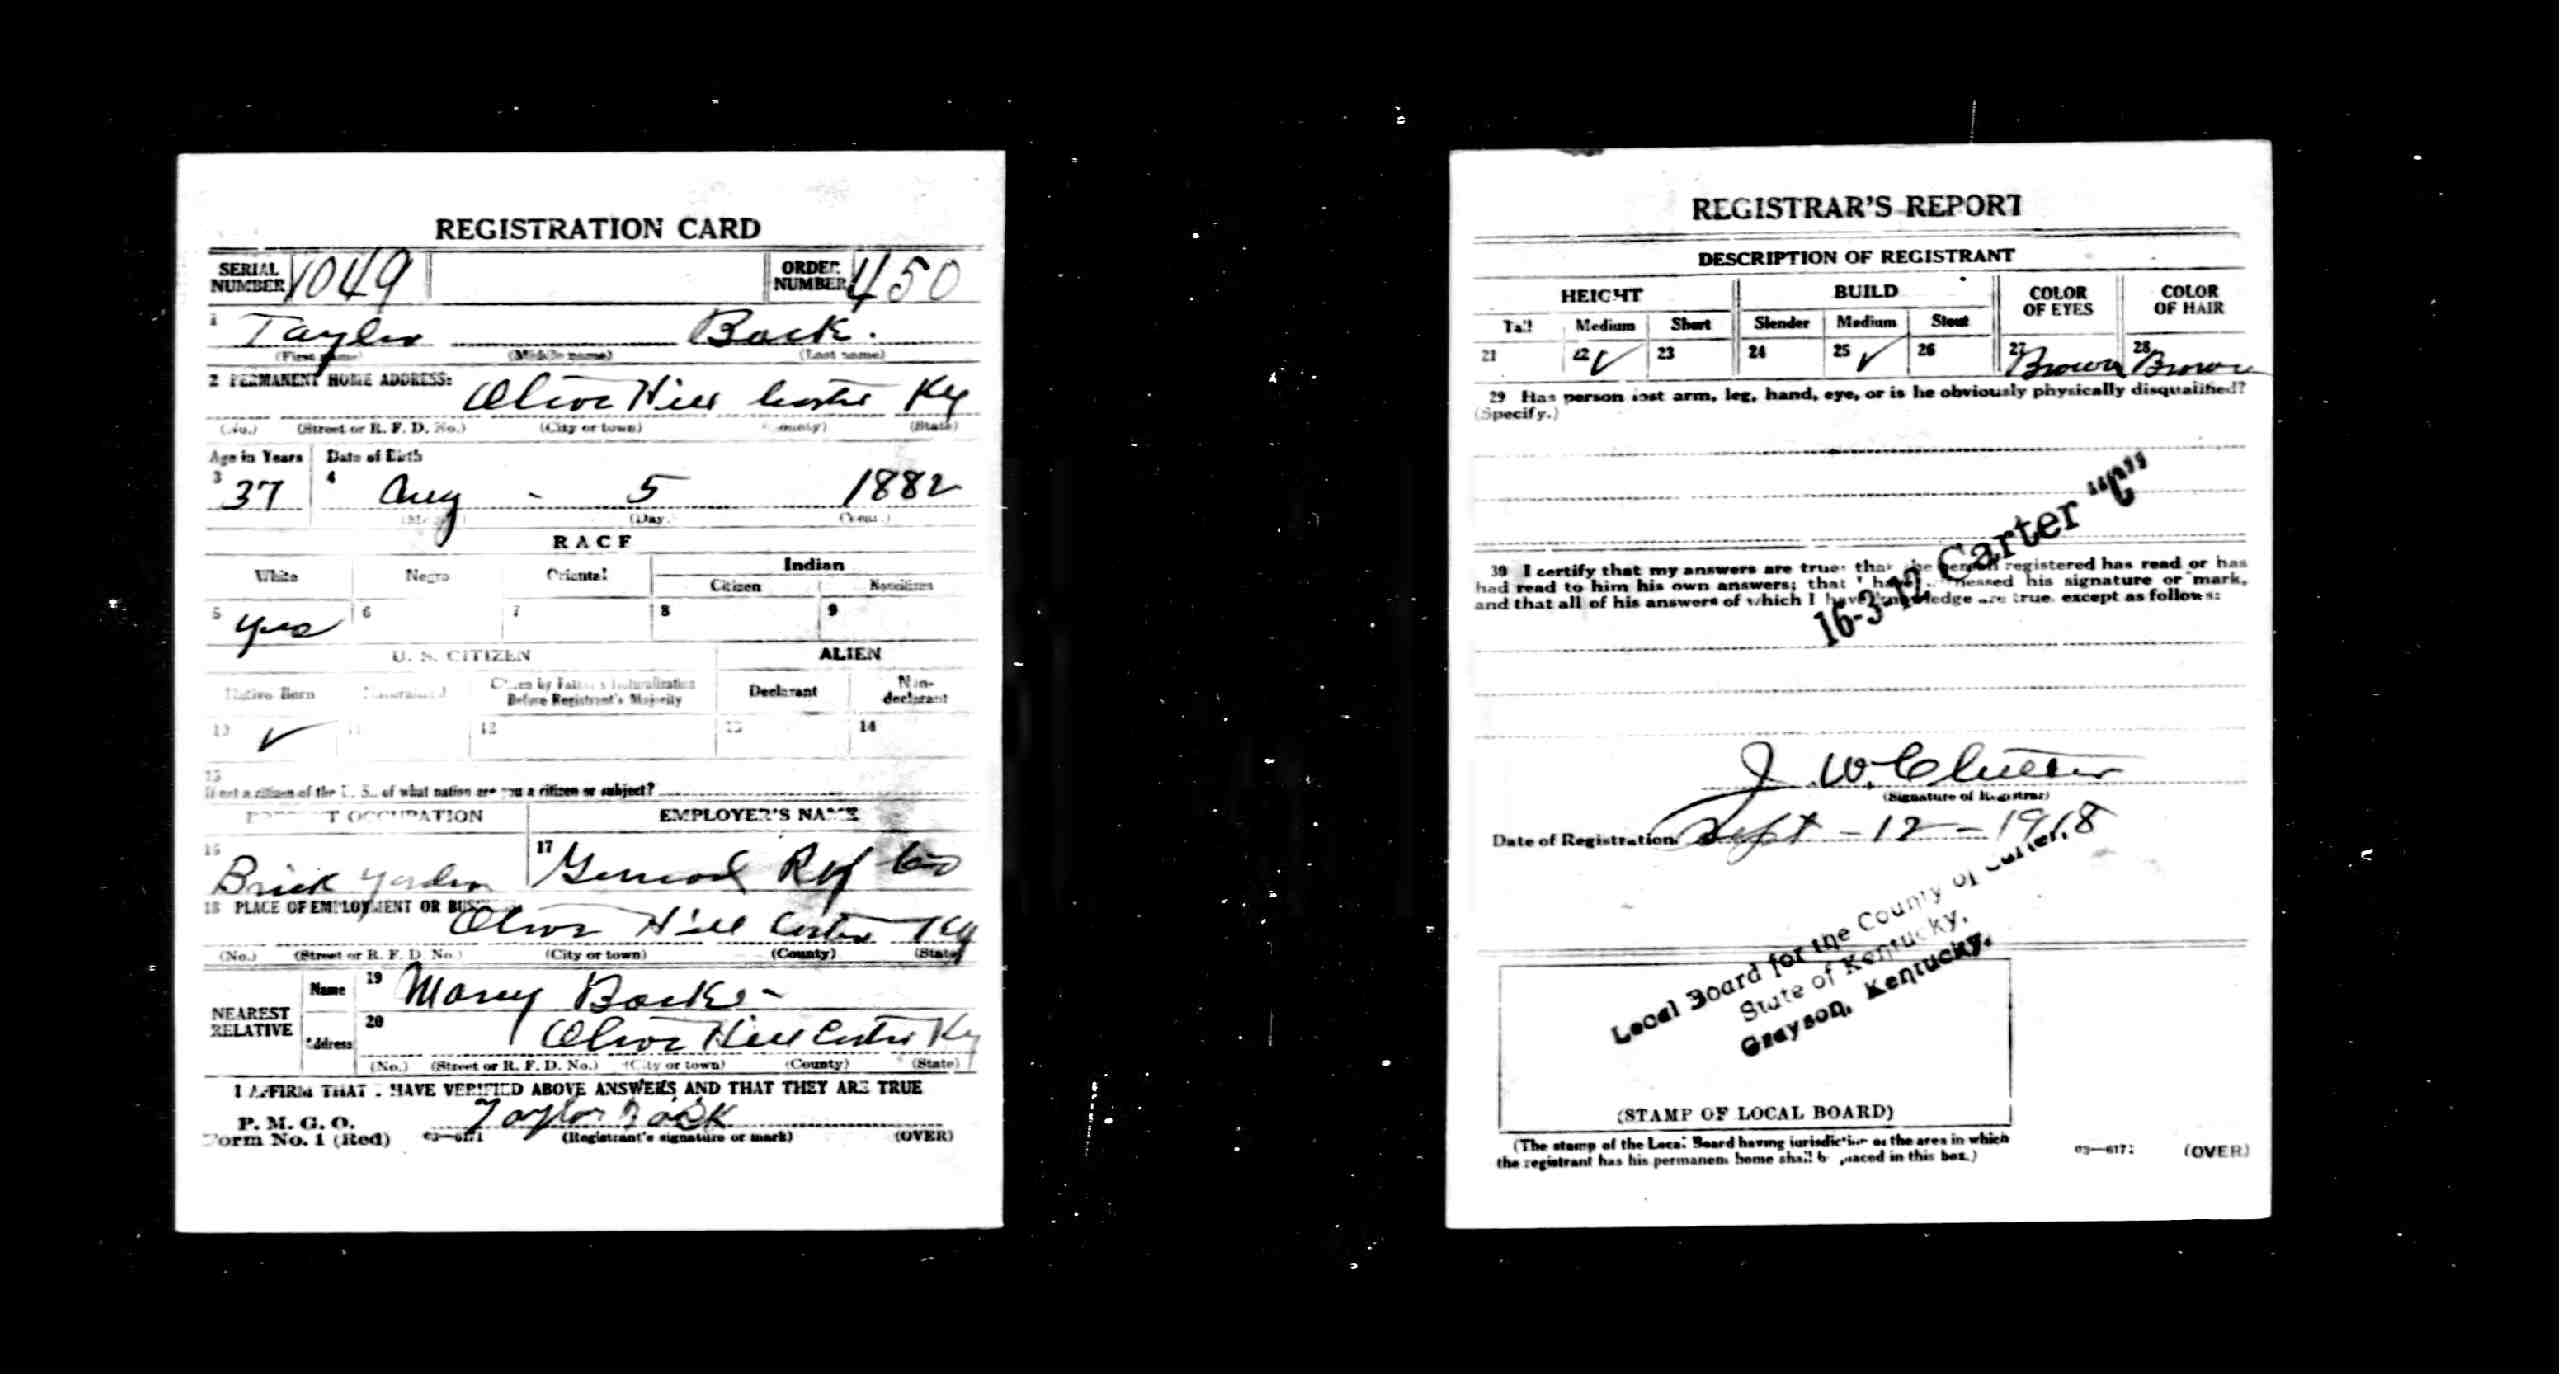 REGISTRATION CARD
SERIAL NUMBER 1049 ORDER NUMBER 450
1 Taylor Back.
(First name) (Middle name) (Last name)
2 PERMANENT HOME ADDRESS: Olive Hill Carter Ky
(No.) (Street or R. F. D. No.) (City or town) (County) (State)
Age in Years Date of Birth
3 37 4 Aug - 5 1882
(Month) (Day.) (Year.)
RACE
White Negro Oriental Indian
Citizen Noncitizen
5 yes 6 7 8 9
U. S. CITIZEN ALIEN
Native Born Naturalized Citizen by Father's Naturalization Before Registrant's Majority Declarant Non-declarant
10 ✓ 11 12 13 14
15
If not a citizen of the U. S., of what nation are you a citizen or subject?
PRESENT OCCUPATION EMPLOYER'S NAME
16 Brick 17 General Ref Co
18 PLACE OF EMPLOYMENT OR BUSINESS: Olive Hill Carter Ky
(No.) (Street or R. F. D. No.) (City or town) (County) (State)
NEAREST RELATIVE Name 19 Back
Address 20 Olive Hill Carter Ky
(No.) (Street or R. F. D. No.) (City or town) (County) (State)
I AFFIRM THAT I HAVE VERIFIED ABOVE ANSWERS AND THAT THEY ARE TRUE
P. M. G. O.
Form No. 1 (Red) 03—6171 Taylor Back
(Registrant's signature or mark) (OVER)
REGISTRAR'S REPORT
DESCRIPTION OF REGISTRANT
HEIGHT BUILD COLOR OF EYES COLOR OF HAIR
Tall Medium Short Slender Medium Stout
21 22 ✓ 23 24 25 ✓ 26 27 Brown 28 Brown
29 Has person lost arm, leg, hand, eye, or is he obviously physically disqualified?
(Specify.)
16-3-12 Carter "C"
30 I certify that my answers are true; that the person registered has read or has
had read to him his own answers; that I have witnessed his signature or mark,
and that all of his answers of which I have knowledge are true, except as follows:
J. W.
(Signature of Registrar)
Date of Registration Sept - 12 - 1918
Local Board for the County of Carter,
State of Kentucky,
Grayson, Kentucky.
(STAMP OF LOCAL BOARD)
(The stamp of the Local Board having jurisdiction of the area in which
the registrant has his permanent home shall be placed in this box.)
03—6171 (OVER)